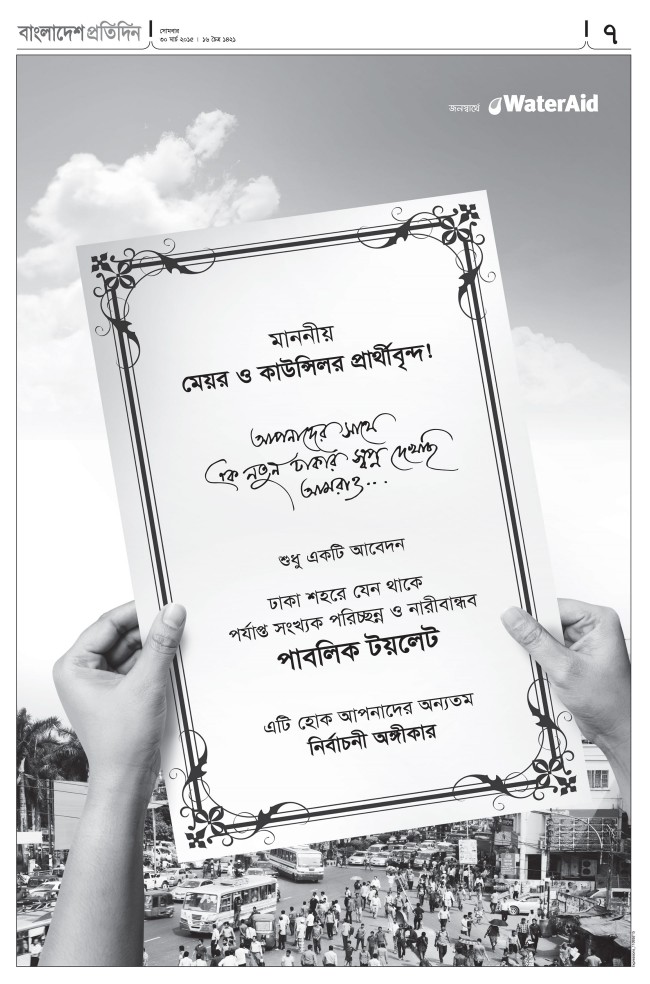 বাংলাদেশ প্রতিদিন
সোমবার
৩০ মার্চ ২০১৫ । ১৬ চৈত্র ১৪২১
৭
জনস্বার্থে WaterAid
মাননীয়
মেয়র ও কাউন্সিলর প্রার্থীবৃন্দ!
আপনাদের সাথে
এক নতুন ঢাকার স্বপ্ন দেখছি
আমরাও...
শুধু একটি আবেদন
ঢাকা শহরে যেন থাকে
পর্যাপ্ত সংখ্যক পরিচ্ছন্ন ও নারীবান্ধব
পাবলিক টয়লেট
এটি হোক আপনাদের অন্যতম
নির্বাচনী অঙ্গীকার